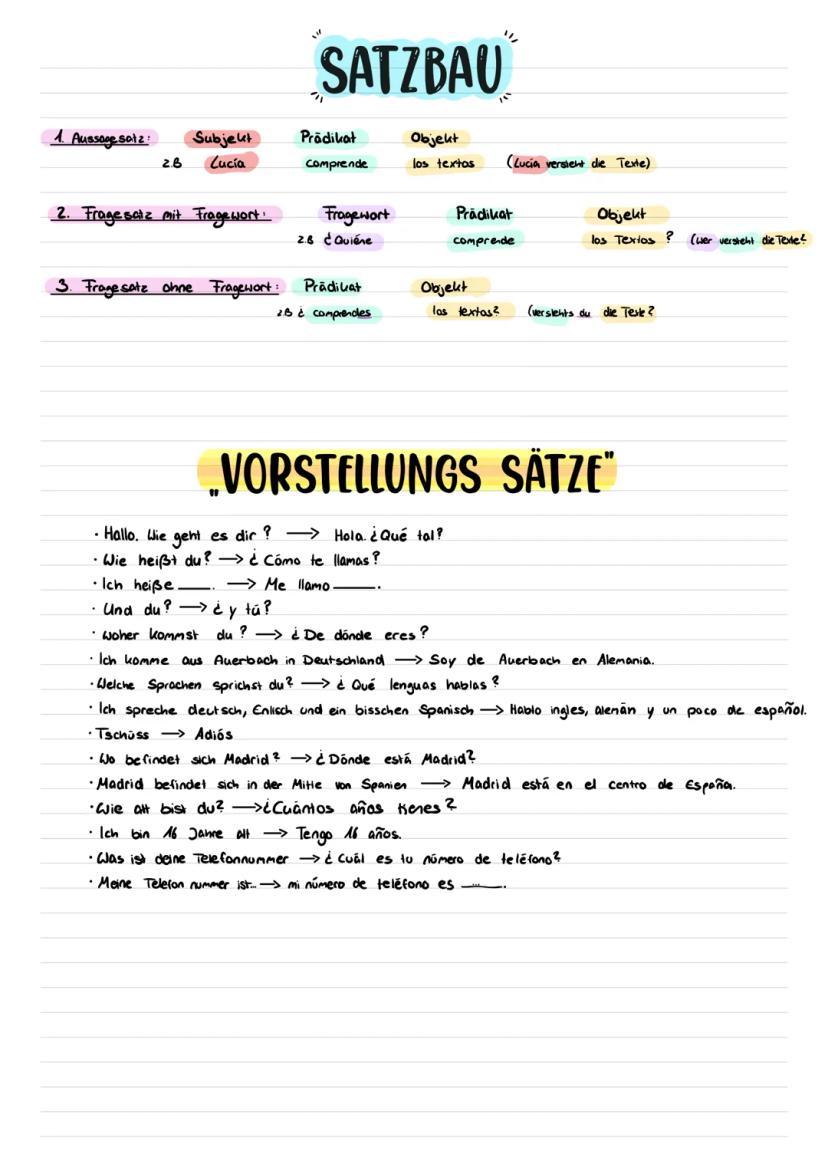 SATZBAU
1. Aussagesatz: Subjekt Prädikat Objekt
z.B Lucía comprende los textos (Lucía versteht die Texte)
2. Fragesatz mit Fragewort: Fragewort Prädikat Objekt
z.B ¿Quiéne comprende los Textos ? (Wer versteht die Texte?
3. Fragesatz ohne Fragewort: Prädikat Objekt
z.B ¿ comprendes los textos? (verstehts du die Texte?
„VORSTELLUNGS SÄTZE"
· Hallo. Wie geht es dir ? → Hola. ¿Qué tal?
· Wie heißt du? → ¿ Cómo te llamas?
· Ich heiße ____. → Me llamo ____.
· Und du? → ¿ y tú?
· Woher kommst du ? → ¿ De dónde eres?
· Ich komme aus Auerbach in Deutschland → Soy de Auerbach en Alemania.
· Welche Sprachen sprichst du? → ¿ Qué lenguas hablas ?
· Ich spreche deutsch, Enlisch und ein bisschen Spanisch → Hablo ingles, alemán y un poco de español.
· Tschüss → Adiós
· Wo befindet sich Madrid? → ¿ Dónde está Madrid?
· Madrid befindet sich in der Mitte von Spanien → Madrid está en el centro de España.
· Wie alt bist du? → ¿Cuántos años tienes ?
· Ich bin 16 Jahre alt → Tengo 16 años.
· Was ist deine Telefonnummer → ¿ Cuál es tu número de teléfono?
· Meine Telefon nummer ist... → mi número de teléfono es __...__.